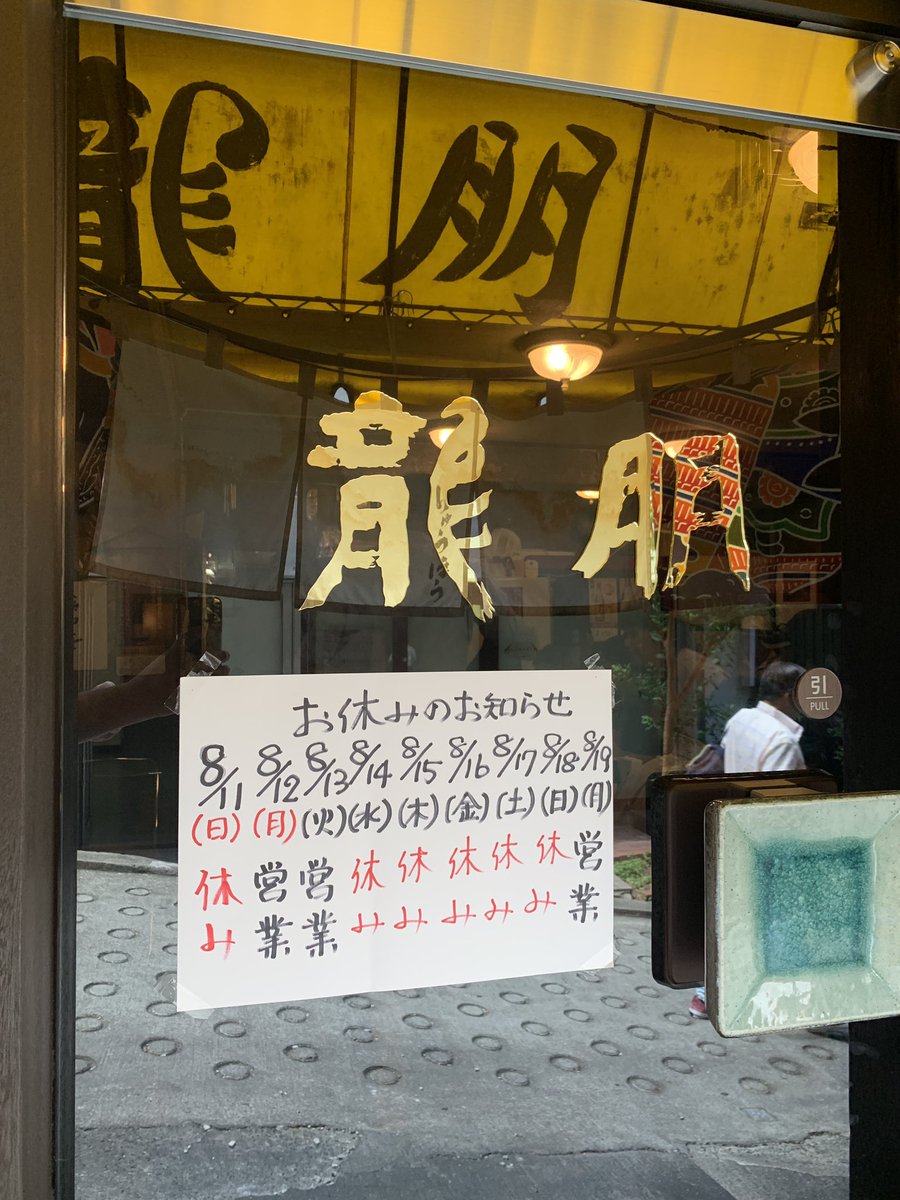 龍朋
龍朋
お休みのお知らせ
8/11 8/12 8/13 8/14 8/15 8/16 8/17 8/18 8/19
(日) (月) (火) (水) (木) (金) (土) (日) (月)
休み 営業 営業 休み 休み 休み 休み 休み 営業
引
PULL